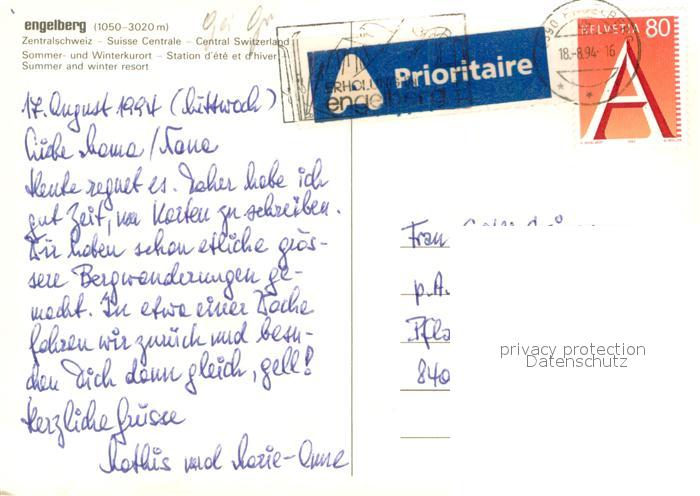 engelberg (1050–3020 m)
Zentralschweiz – Suisse Centrale – Central Switzerland
Sommer- und Winterkurort – Station d'été et d'hiver
Summer and winter resort
Prioritaire
ERHOLUNG
engelberg
18.-8.94-16
HELVETIA 80
A
17. August 1994 (Mittwoch)
Liebe Mama / Nana
Heute regnet es. Daher habe ich
gut Zeit, um Karten zu schreiben.
Wir haben schon etliche grös-
sere Bergwanderungen ge-
macht. In etwa einer Woche
fahren wir zurück und besu-
chen Dich dann gleich, gell!
Herzliche Grüsse
Mathis und Marie-Anne
Frau
p.A.
Pfla
840
privacy protection
Datenschutz